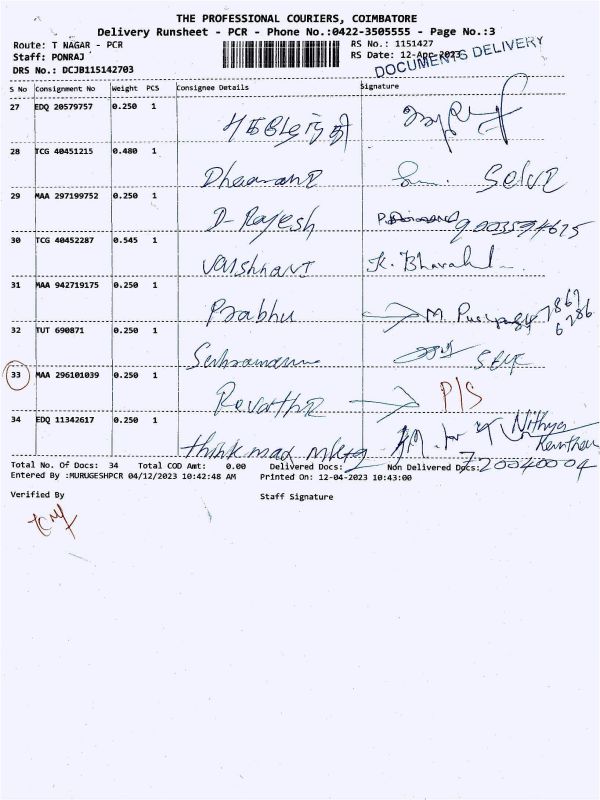 THE PROFESSIONAL COURIERS, COIMBATORE
Delivery Runsheet - PCR - Phone No.:0422-3505555 - Page No.:3
Route: T NAGAR - PCR RS No.: 1151427
Staff: PONRAJ RS Date: 12-Apr-2023
DRS No.: DCJB115142703 DOCUMENTS DELIVERY
S No Consignment No Weight PCS Consignee Details Signature
27 EDQ 20579757 0.250 1
28 TCG 40451215 0.480 1
29 MAA 297199752 0.250 1
D-Rajesh
30 TCG 40452287 0.545 1
Vaishnavi
31 MAA 942719175 0.250 1
Prabhu
32 TUT 690871 0.250 1
SELF
33 MAA 296101039 0.250 1
P/S
34 EDQ 11342617 0.250 1
Nithya
think max mktg
Total No. Of Docs: 34 Total COD Amt: 0.00 Delivered Docs: Non Delivered Docs:
Entered By :MURUGESHPCR 04/12/2023 10:42:48 AM Printed On: 12-04-2023 10:43:00
Verified By Staff Signature